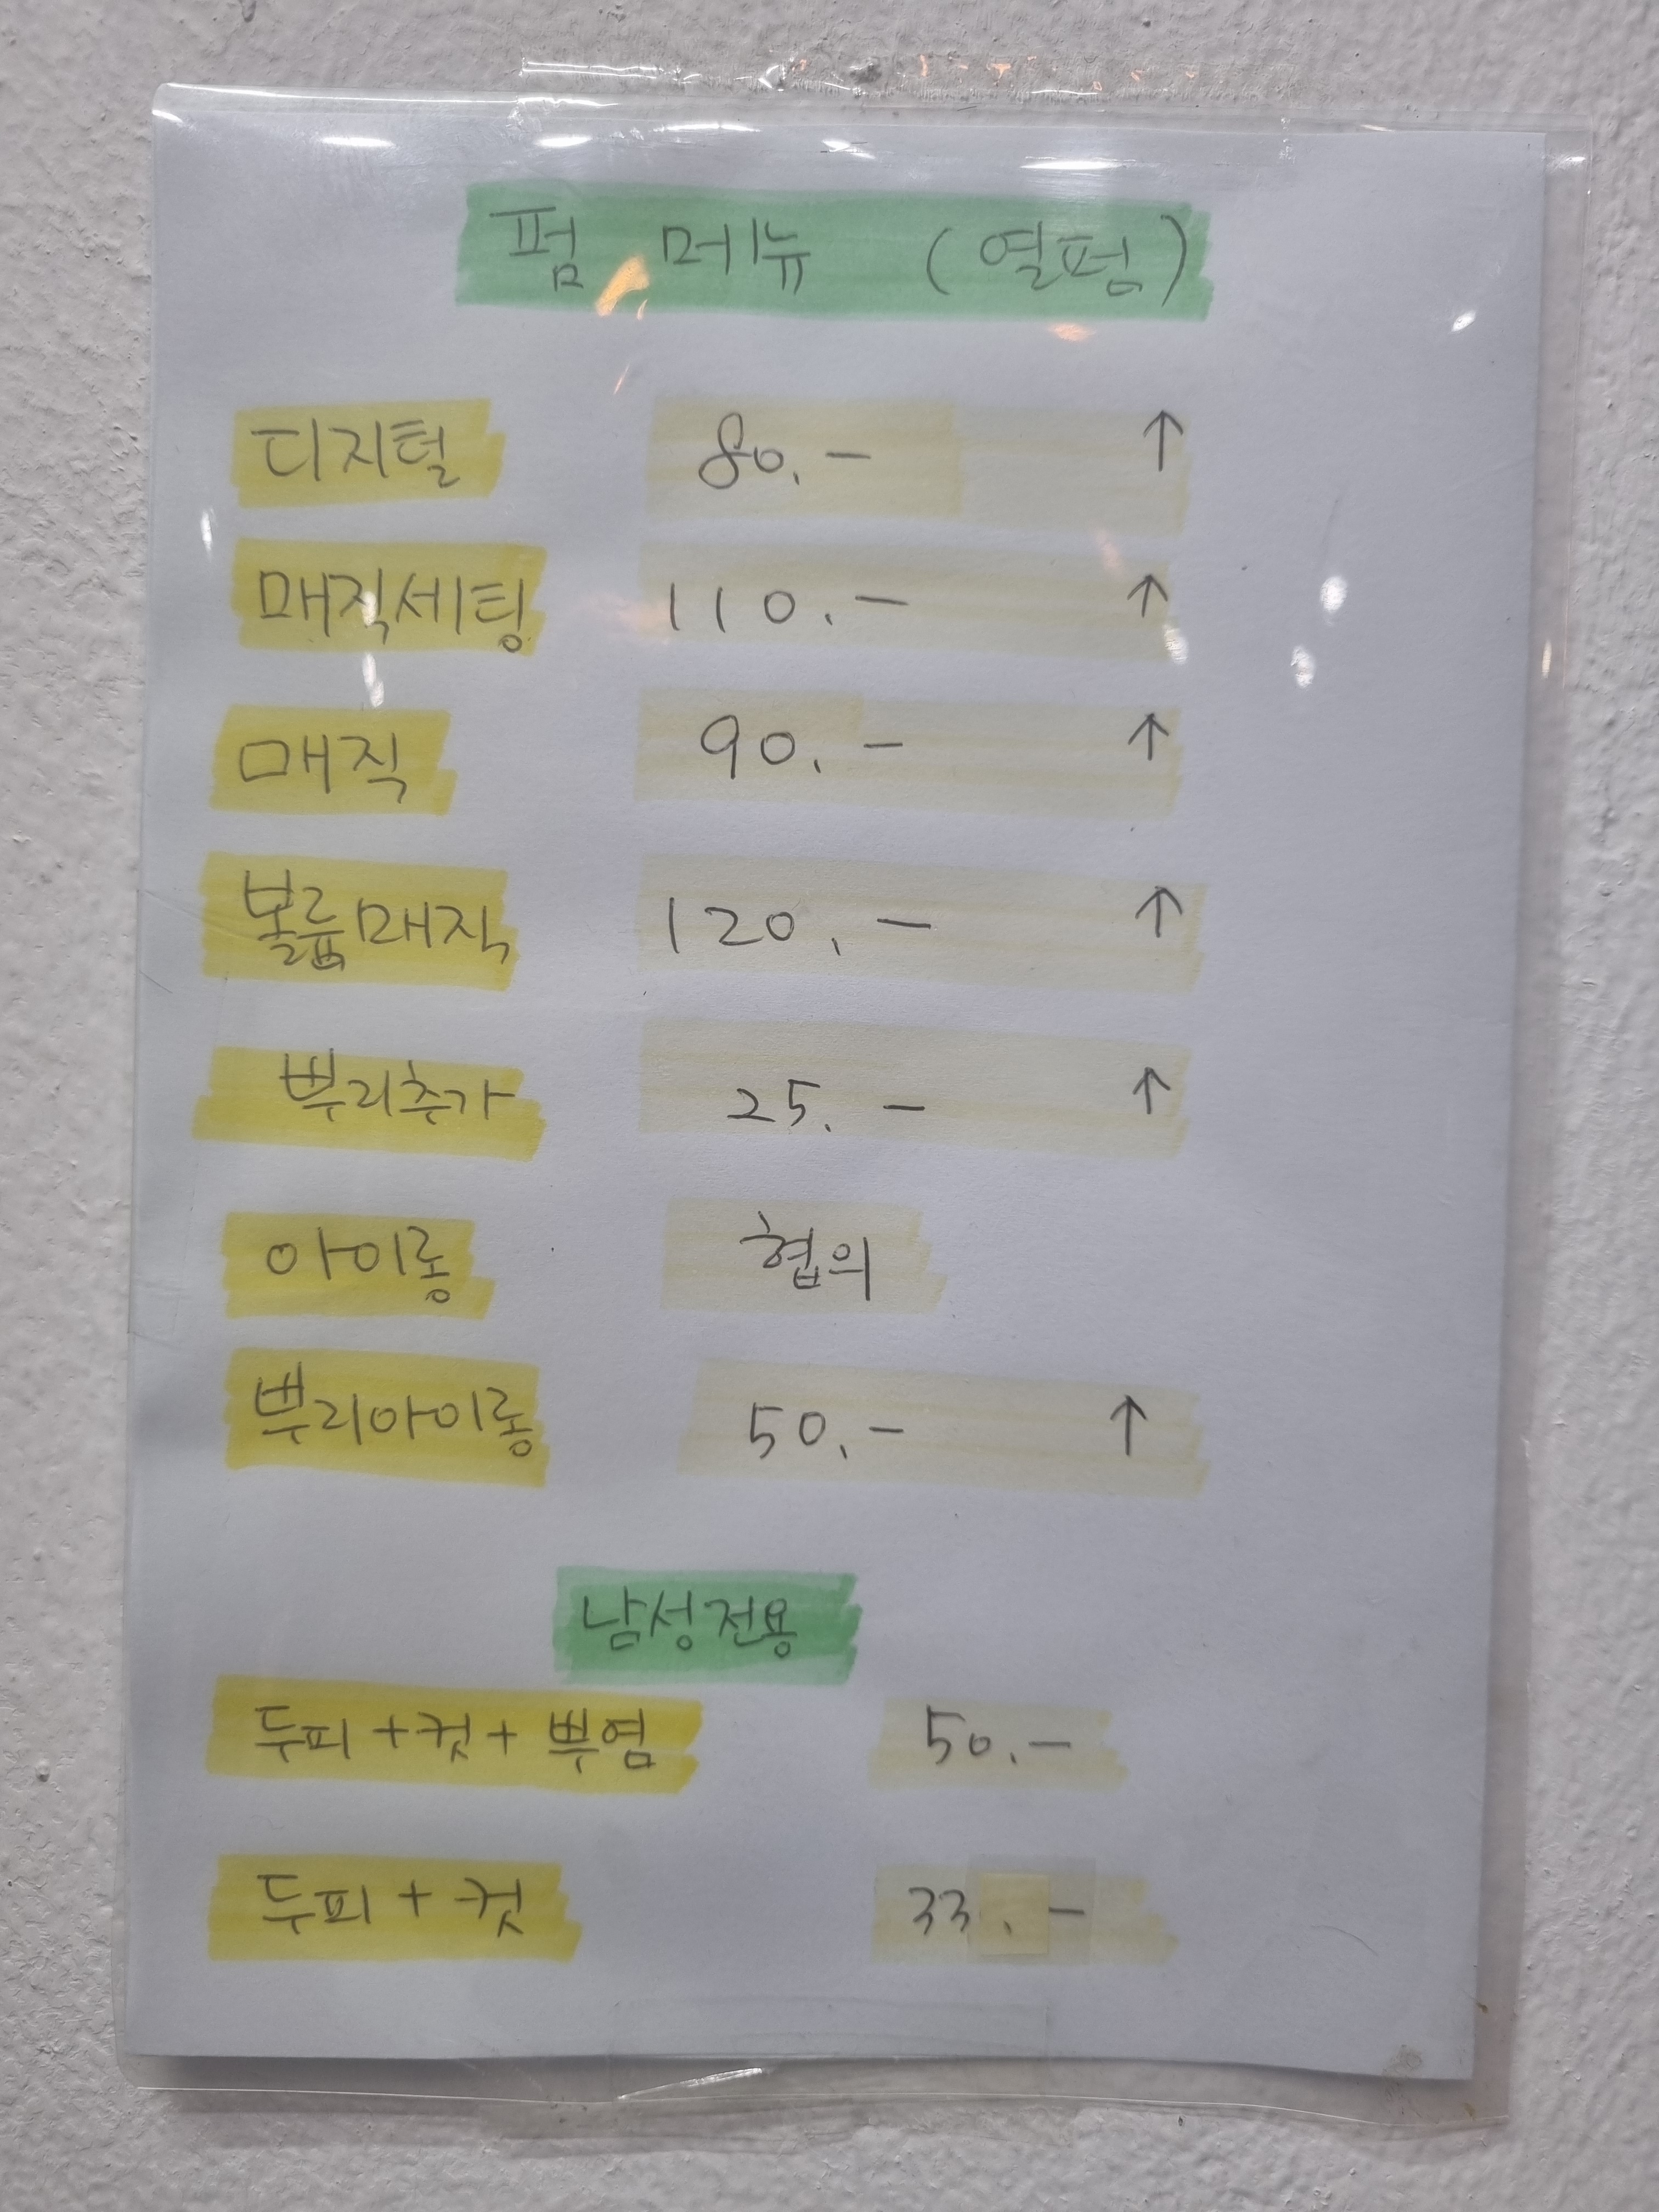 펌 메뉴 (열펌)
디지털 80.- ↑
매직세팅 110.- ↑
매직 90.- ↑
볼륨매직 120.- ↑
뿌리추가 25.- ↑
아이롱 협의
뿌리아이롱 50.- ↑
남성전용
두피+컷+뿌염 50.-
두피+컷 33.-